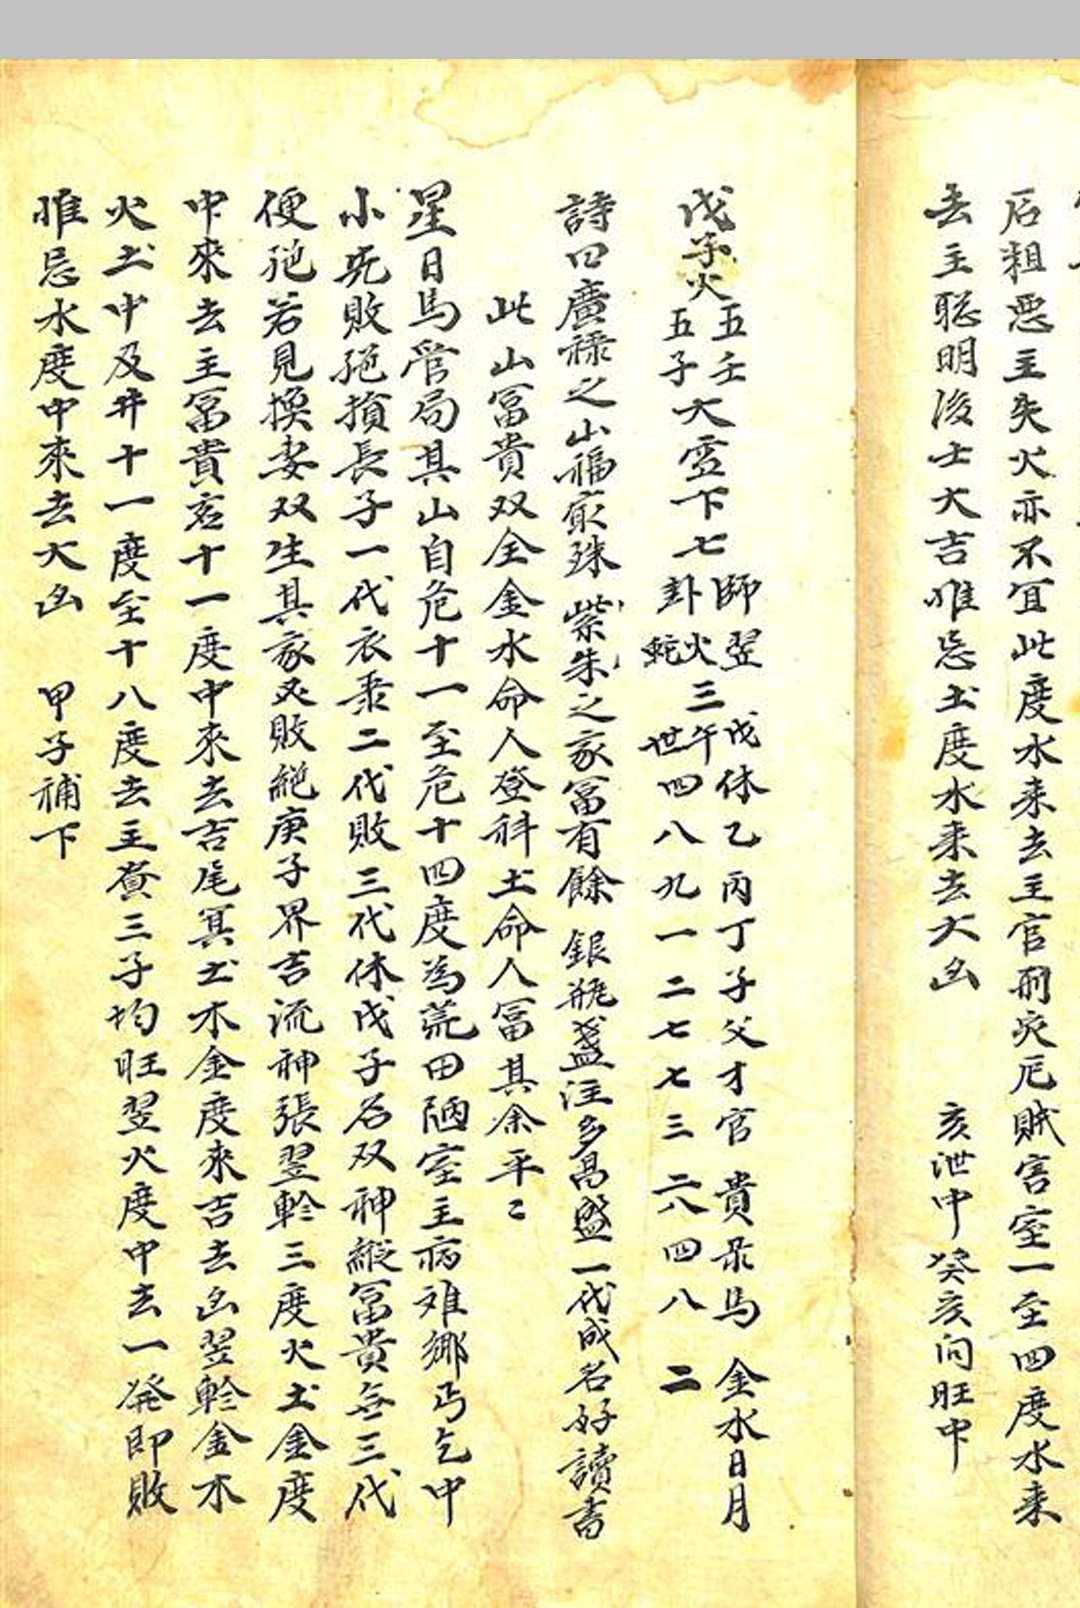 石粗惡主失火亦不宜此度水来去主官刑災厄賊害室一至四度水来
去主聪明浚士大吉惟忌土度水来去大凶 亥泄中癸亥问旺中
戊子火
五壬
五子
大空下七
師翌
卦火
蛇
三
戊休乙丙丁子父才官 貴录馬 金水日月
午
世四八九一二七七三六四八 二
詩曰廣禄之山福最殊 紫朱之家冨有餘 銀瓶盏注多昌盛一代成名好讀書
此山冨貴双全金水命人登科土命人冨其余平〻
星日馬管局其山自危十一至危十四度為荒田陋室主病难鄉丐乞中
小死敗绝損長子一代衣秉二代敗三代休戊子名双神縱冨貴無三代
便绝若見换妻双生其家又敗絕庚子界吉流神張翌軫三度火土金度
中來去主冨貴危十一度中來去吉尾箕土木金度來吉去凶翌軫金木
火土中及井十一度至十八度去主貧三子均旺翌火度中去一発即敗
惟忌水度中來去大凶 甲子補下